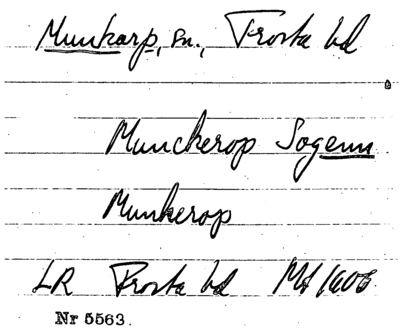 Munkarp, sn., Frosta hd
Munckerop Sogenn
Munkerop
LR Frosta hd Ml 1606
Nr 5563.